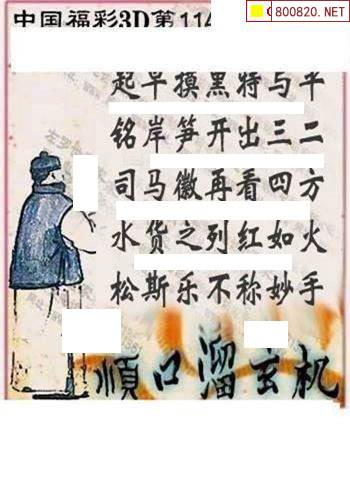 中国福彩3D第114
800820.NET
起早摸黑特与平
铭岸笋开出三二
司马徽再看四方
水货之列红如火
松斯乐不称妙手
顺口溜玄机